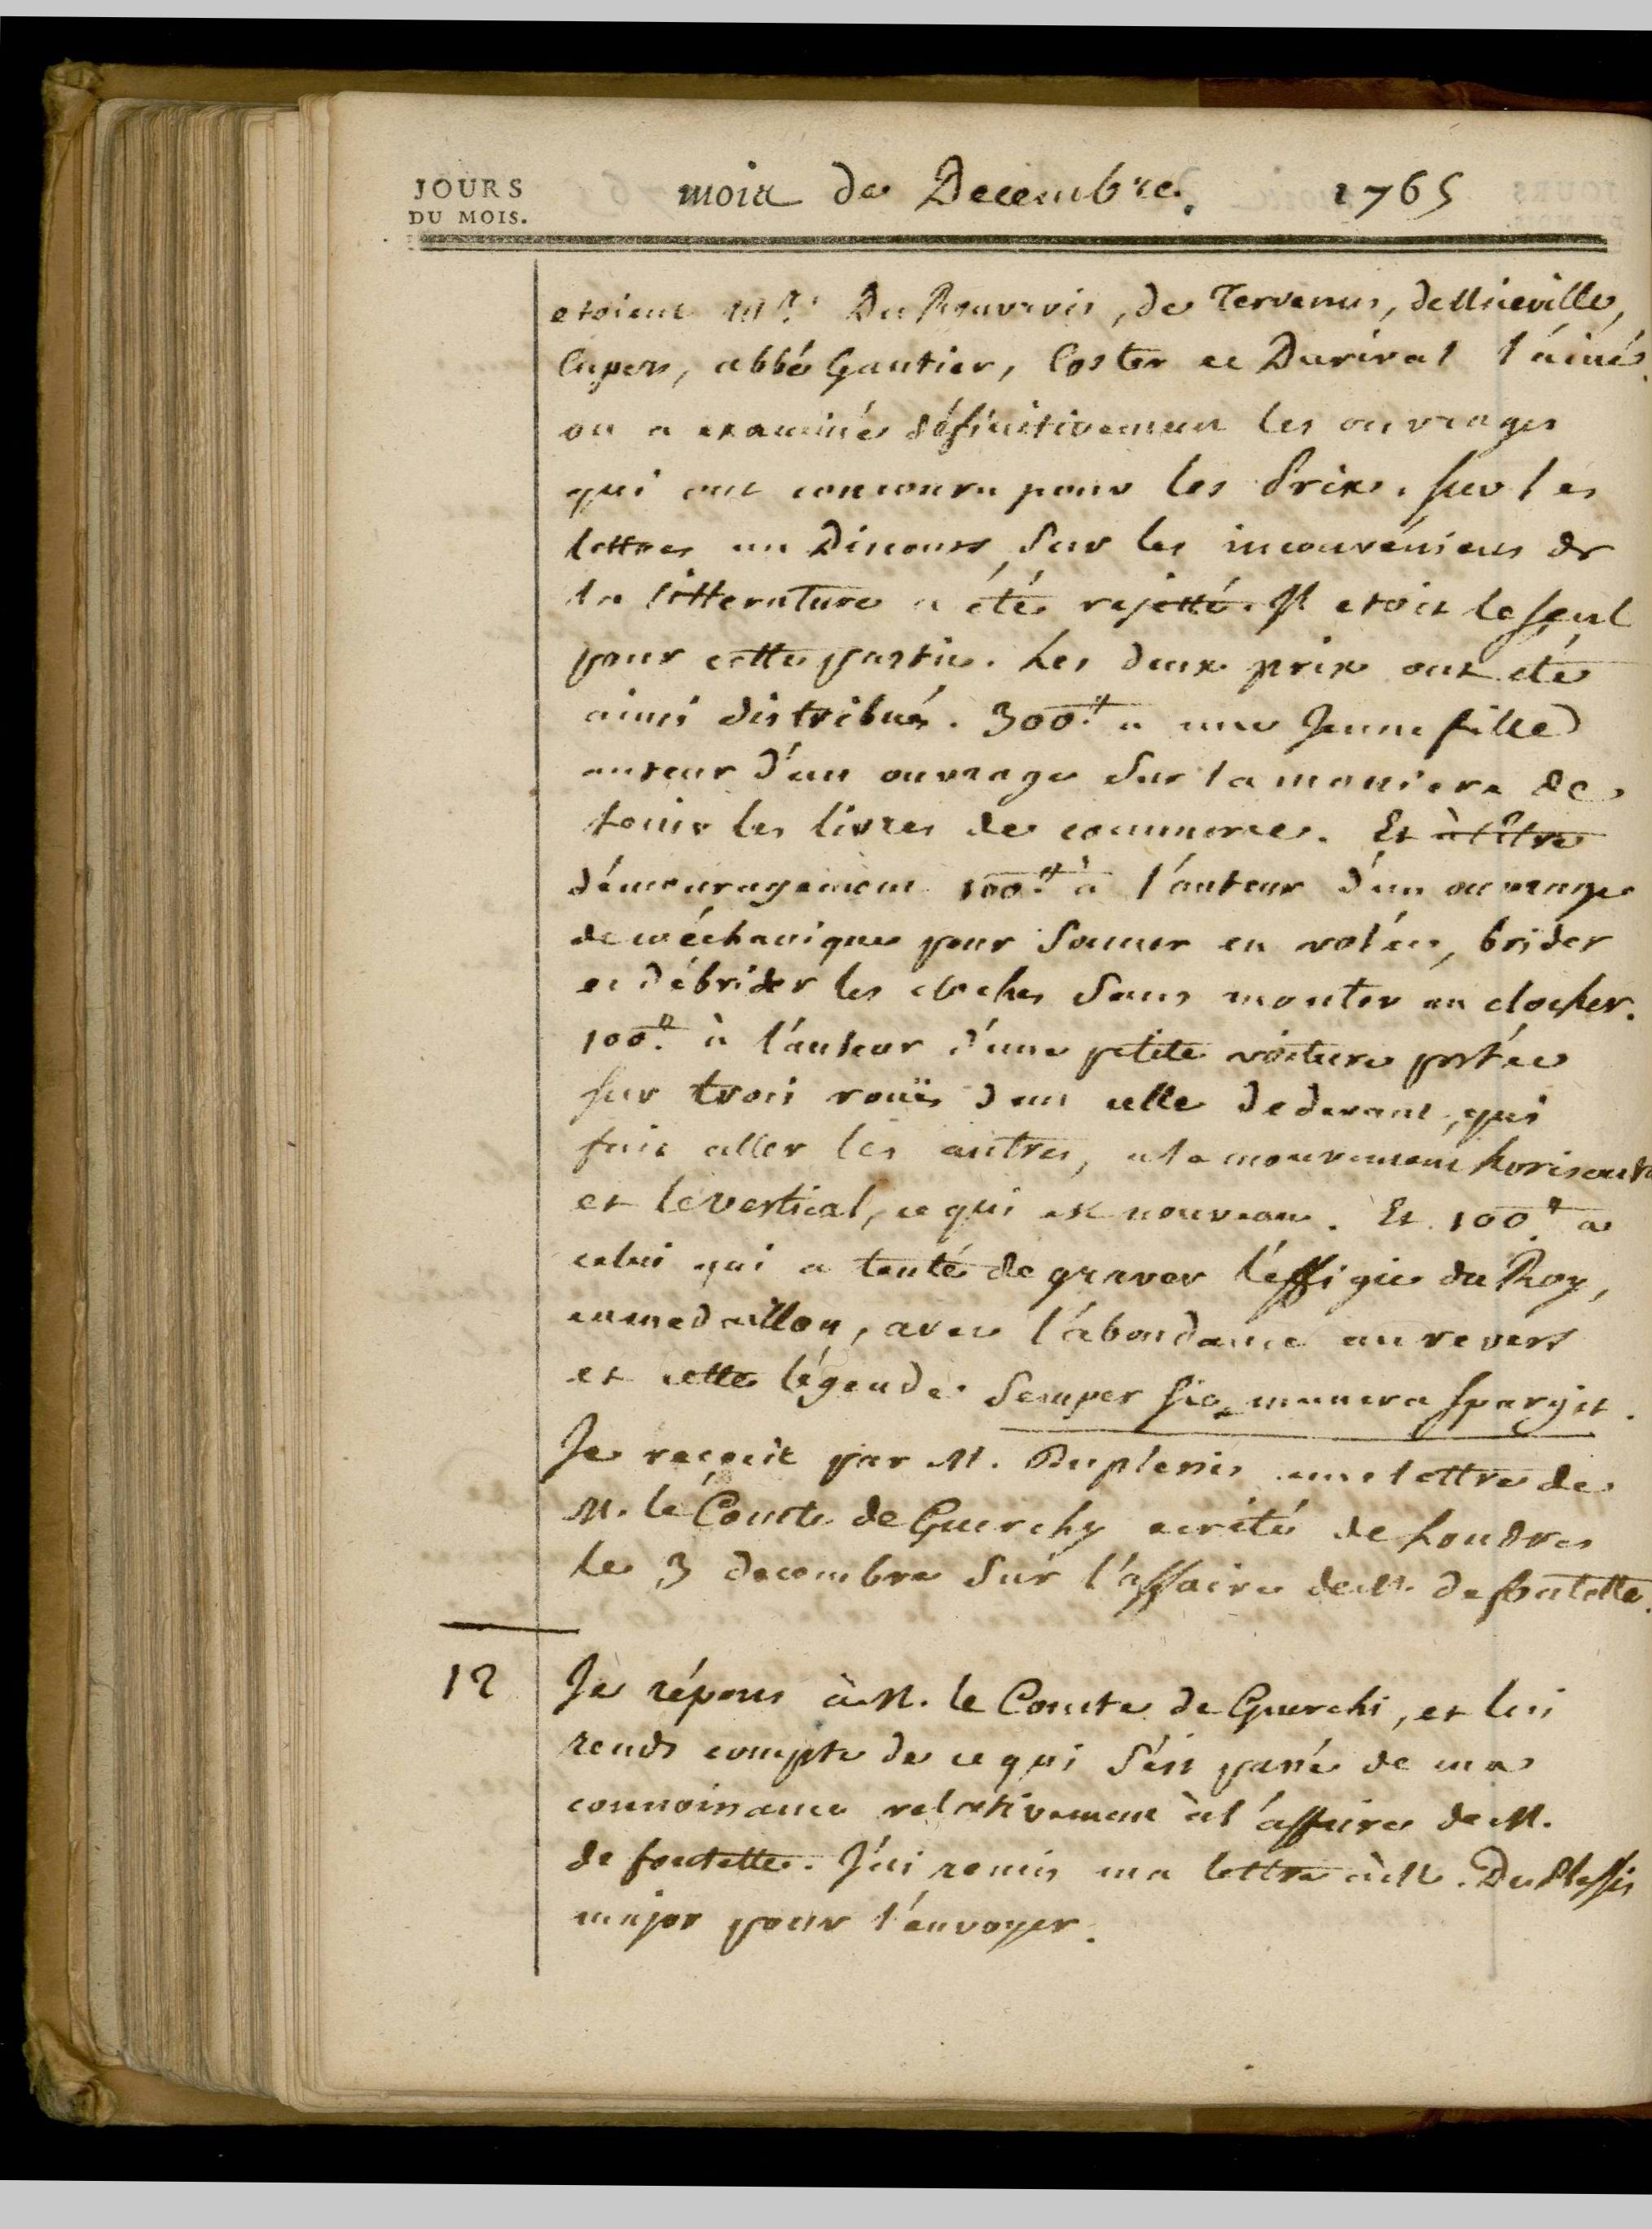 JOURS
DU MOIS.
mois de Decembre. 1765
etoient Mrs. Du Rouvrois, de Tervenus, de Nuceville,
Cupers, abbé Gautier, Coster et Durival l'ainé.
on a examiné définitivement les ouvrages
qui ont concouru pour les Prix. sur les
lettres un Discours sur les inconvéniens de
la litterature a été rejetté. Il etoit le seul
pour cette partie. Les deux prix ont eté
ainsi distribués. 300.# a une Jeune fille
auteur d'un ouvrage sur la maniere de
tenir les livres de commerce. Et à titre
d'encouragement 100.# à l'auteur d'un ouvrage
de méchanique pour sonner en volée, brider
et débrider les cloches sans monter au clocher.
100.# à l'auteur d'une petite voiture portée
sur trois rouës dont celle de devant, qui
fait aller les autres, a le mouvement horisontal
et le vertical, ce qui est nouveau. Et 100.# a
celui qui a tenté de graver l'effigie du Roy,
en medaillon, avec l'abondance au revers
et cette légende. Semper sic munera spargit.
Je reçoit par M. Duplessis une lettre de
M. le Comte de Guerchy ecrite de Londres
le 3 decembre sur l'affaire de M. de fontette.
12 Je répons à M. le Comte de Guerchi, et lui
rends compte de ce qui s'est passé de ma
connoissance relativement à l'affaire de M.
de fontette. J'ai remis ma lettre à M. Du Plessis
major pour l'envoyer.